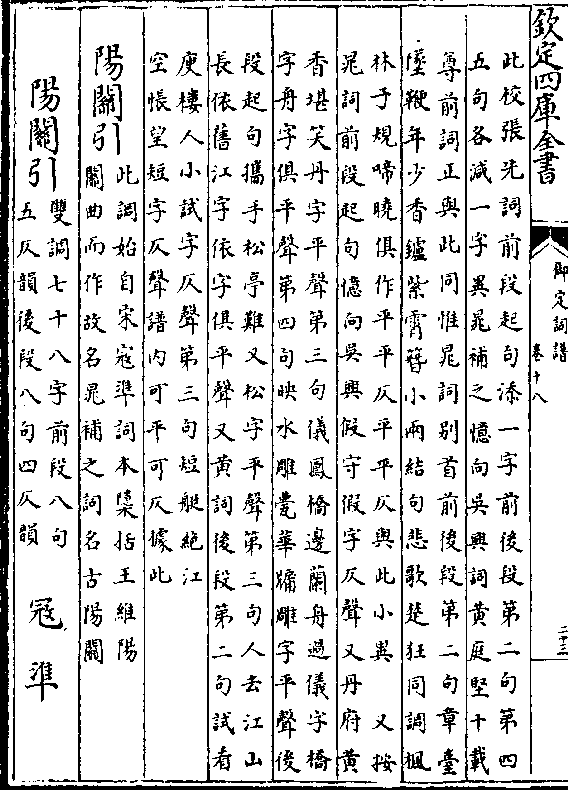 欽定四庫全書
御定詞譜
卷十八
二十三
此校張先詞前段起句添一字前後段第二句第四
五句各減一字異晁補之憶向吳興詞黄庭堅十載
尊前詞正與此同惟晁詞别首前後段第二句章臺
墜鞭年少香鑪紫霄簪小兩結句悲歌楚狂同調楓
林子規啼曉俱作平平仄平平仄與此小異　又按
晁詞前段起句憶向吳興假守假字仄聲又丹府黄
香堪笑丹字平聲第三句儀鳳橋邊蘭舟過儀字橋
字舟字俱平聲第四句映水雕甍華牖雕字平聲後
段起句攜手松亭難又松字平聲第三句人去江山
長依舊江字依字俱平聲又黄詞後段第二句試看
庾樓人小試字仄聲第三句短艇絶江
空悵望短字仄聲譜内可平可仄據此
陽關引
此調始自宋寇準詞本檃括王維陽
關曲而作故名晁補之詞名古陽關
陽關引
雙調七十八字前段八句
五仄韻後段八句四仄韻
寇準